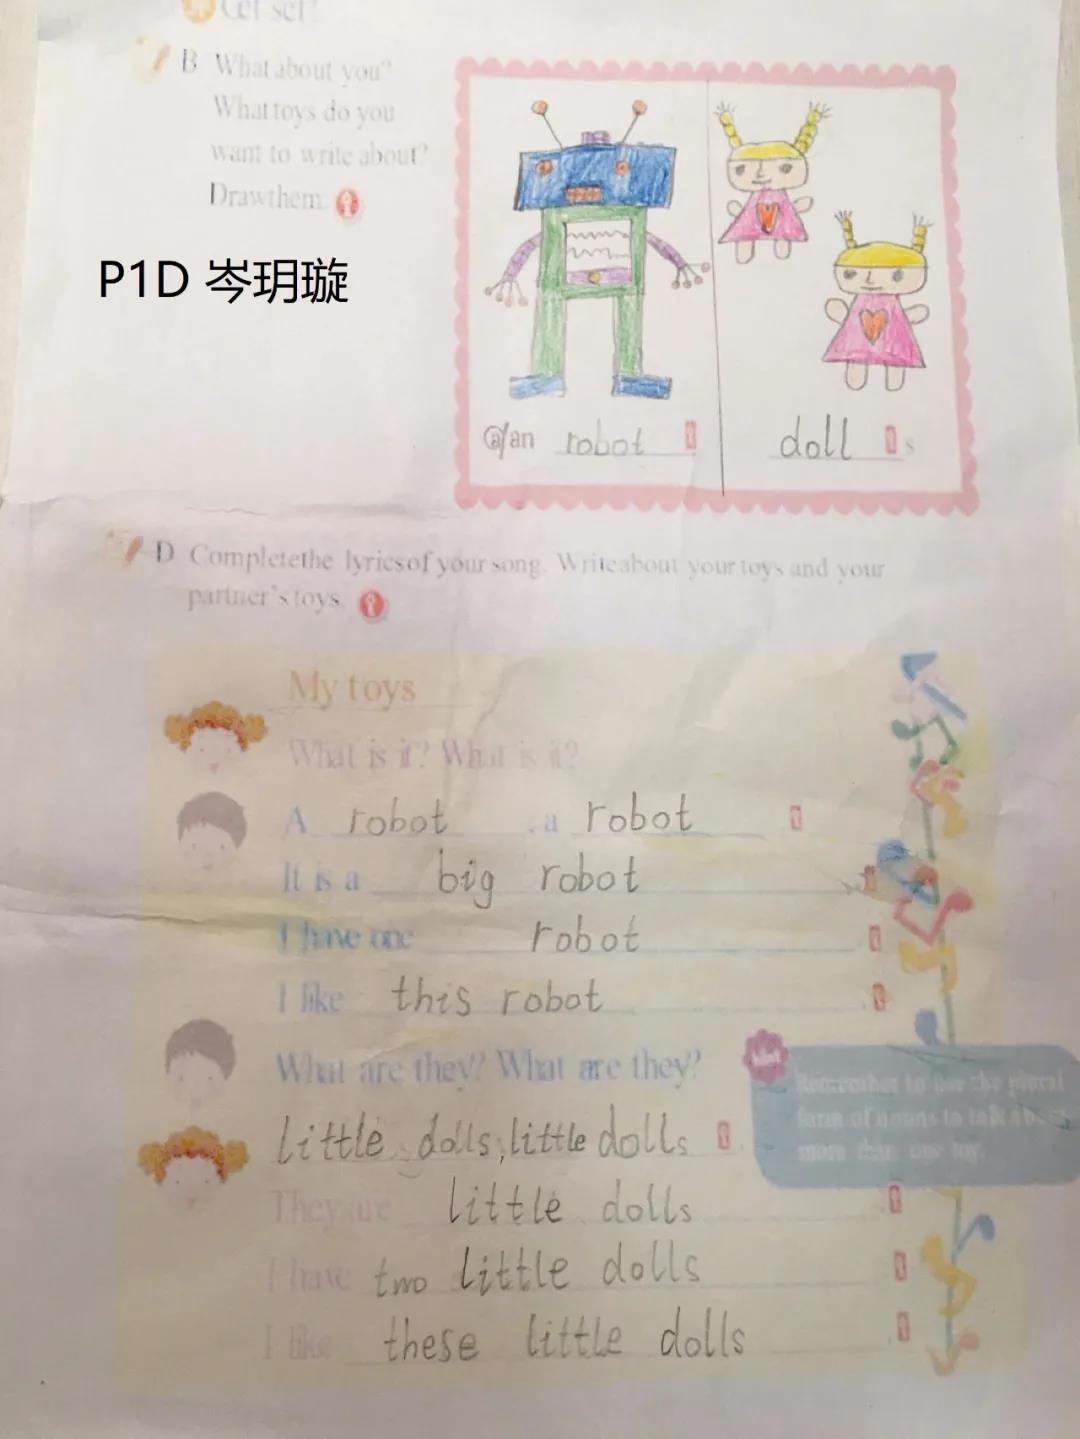 Get set!
B What about you?
What toys do you
want to write about?
Draw them.
P1D 岑玥璇
a/an robot
doll s
D Complete the lyrics of your song. Write about your toys and your
partner's toys.
My toys
What is it? What is it?
A robot , a robot
It is a big robot
I have one robot
I like this robot
What are they? What are they?
Hint
Remember to use the plural
form of nouns to talk about
more than one toy.
little dolls, little dolls
They are little dolls
I have two little dolls
I like these little dolls